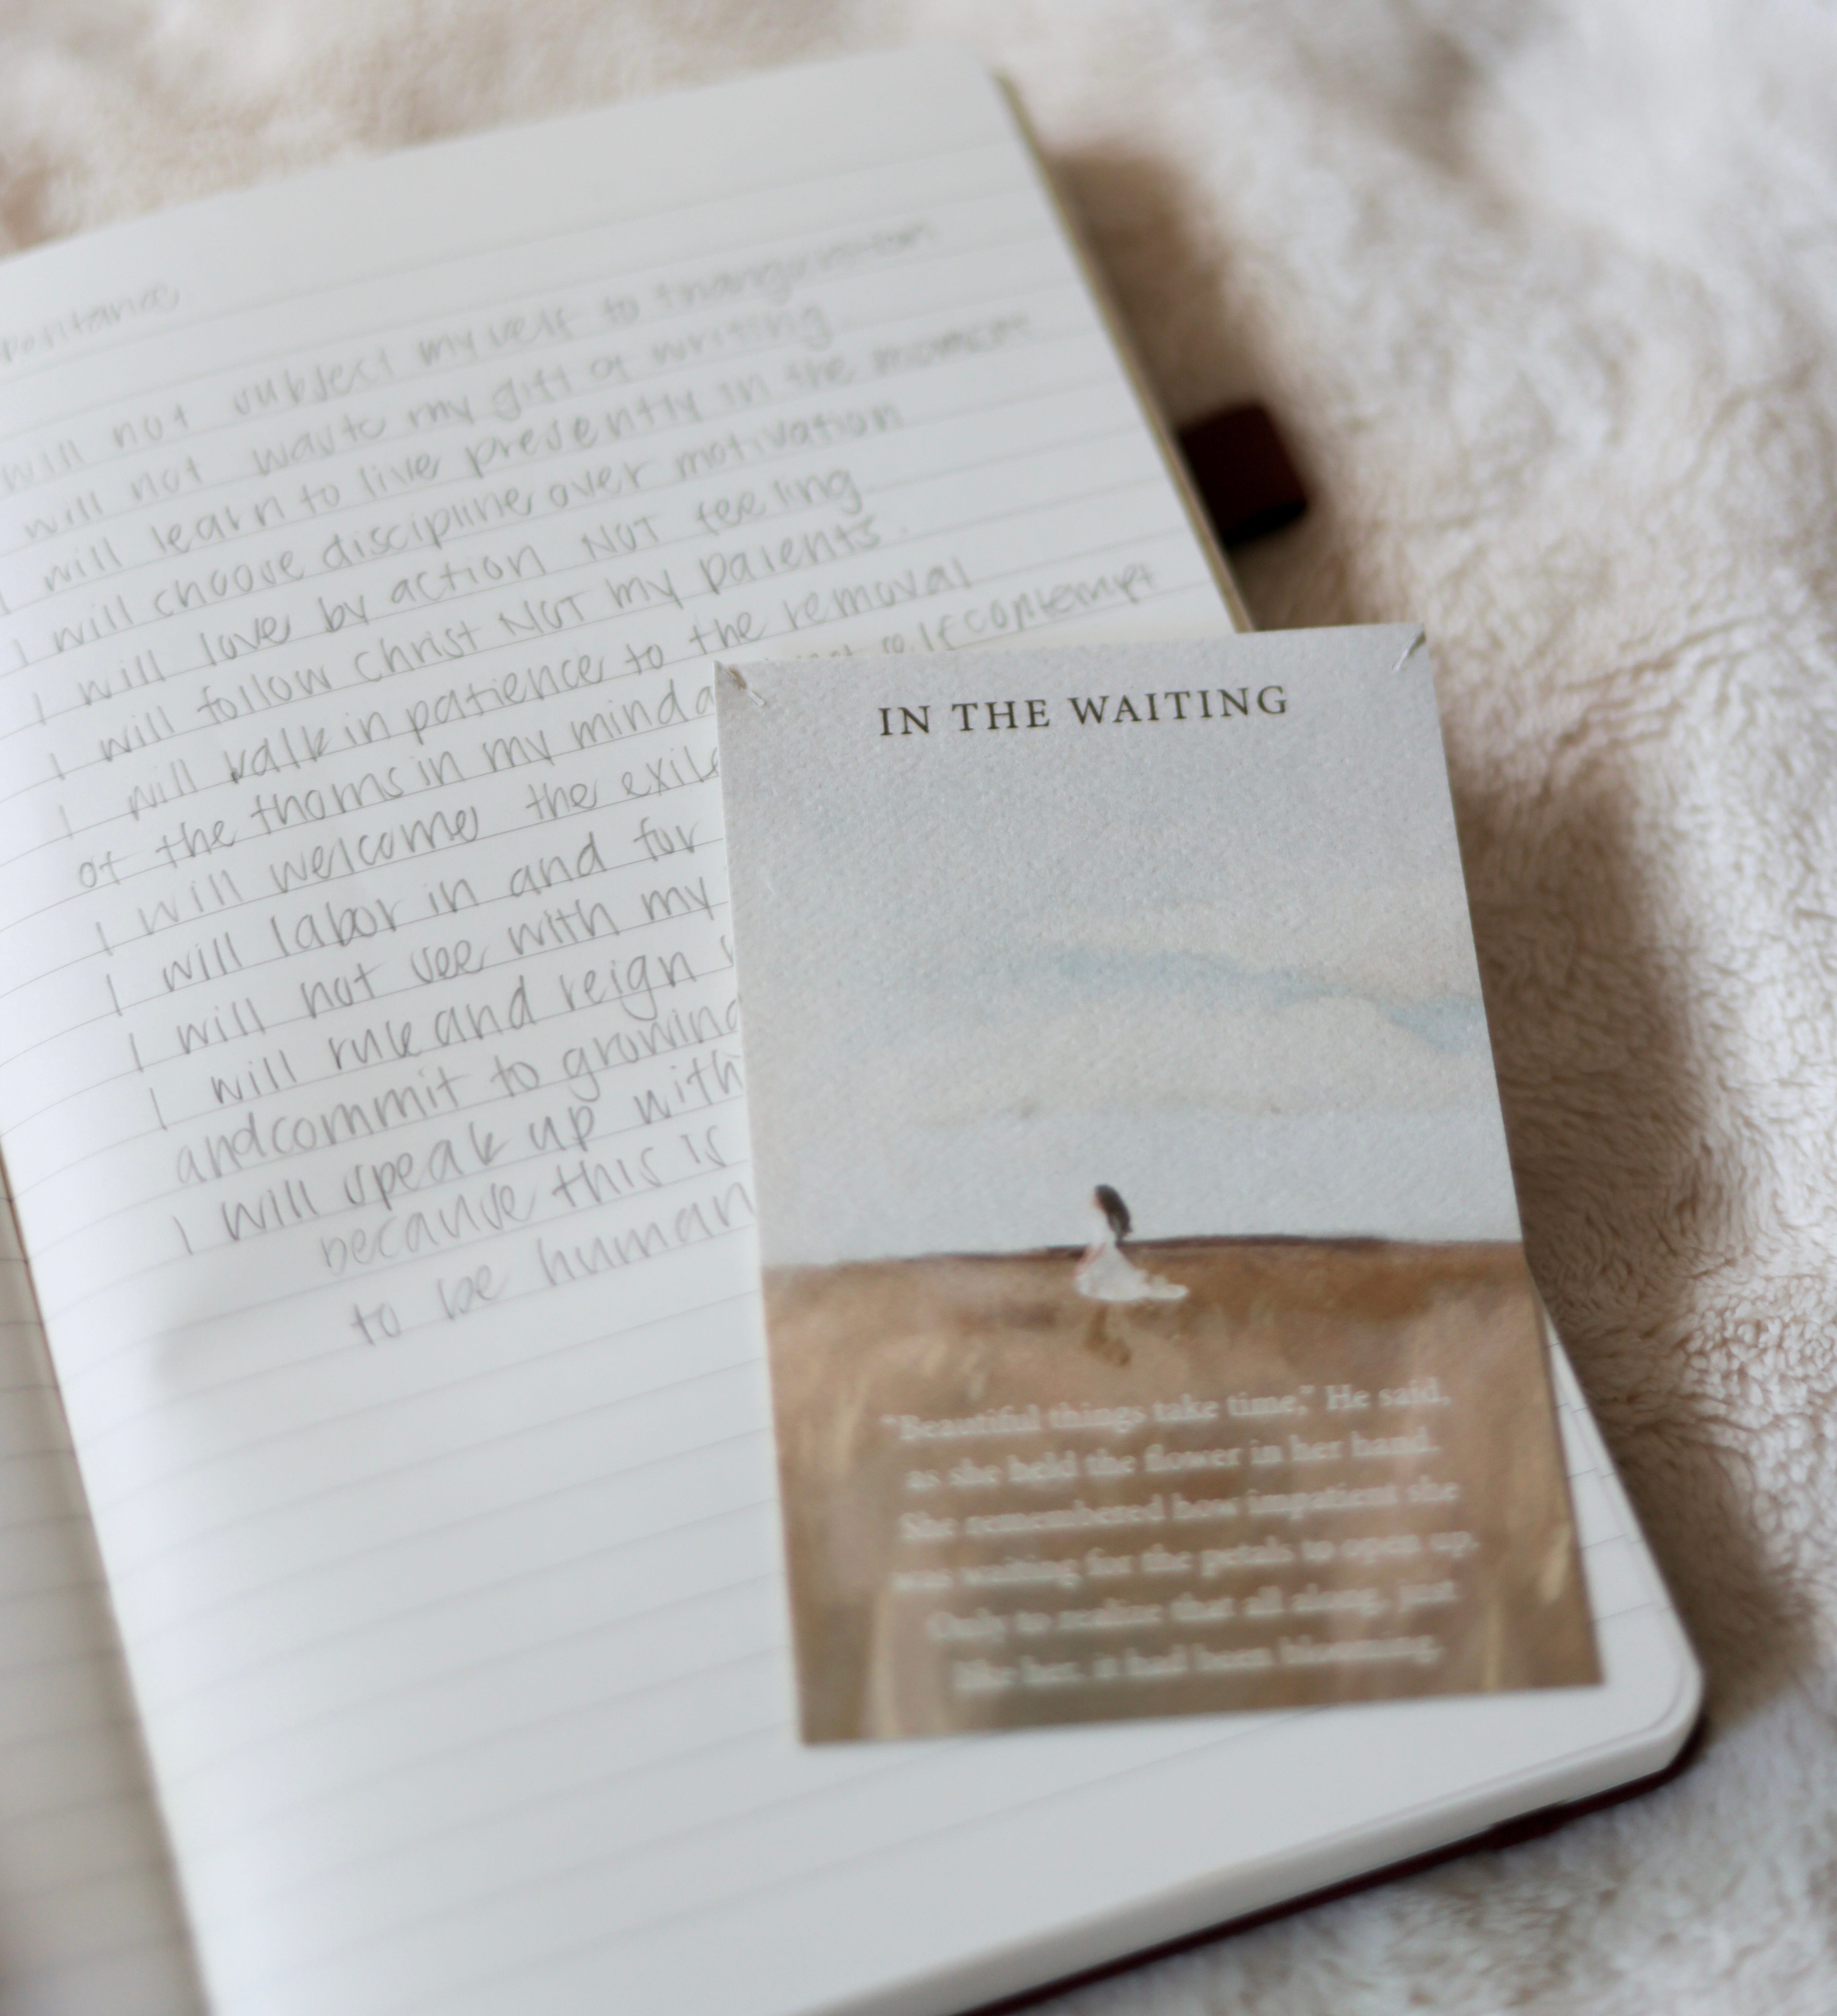 will not subject myself to triangulation
will not waste my gift of writing
I will learn to live presently in the moment
I will choose discipline over motivation
I will love by action NOT feeling
I will follow Christ NOT my parents.
I will walk in patience to the removal
of the thorns in my mind a self contempt
I will welcome the exile
I will labor in and for
I will not see with my
I will rule and reign
and commit to growing
I will speak up with
because this is
to be human
IN THE WAITING
"Beautiful things take time," He said,
as she held the flower in her hand.
She remembered how impatient she
was waiting for the petals to open up.
Only to realize that all along, just
like her, it had been blooming.